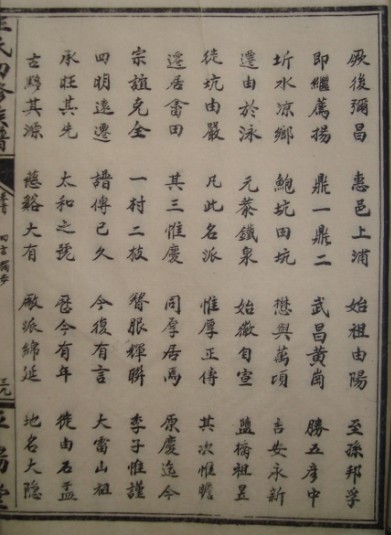 厥後彌昌 惠邑上浦 始祖由陽 至孫邦孚
即繼薦揚 鼎一鼎二 武昌黃崗 勝五彥中
圻水凉鄉 鮑坑田坑 懋與萬項 吉安永新
遷由於泳 元恭鐵泉 始徽自宣 監榷祖昱
徒坑由嚴 凡此名派 惟厚正傳 其次惟瞻
遷居畬田 其三惟慶 同厚居焉 原慶迄今
宗誼克全 一村二枝 簪服輝聯 季子惟謹
四明遠遷 譜傳已久 今復有言 大雷山祖
承旺其先 太和之號 歷今有年 徙由石盂
古黟其源 慈谿大有 厥派綿延 地名大隐
王氏四修族譜
三九